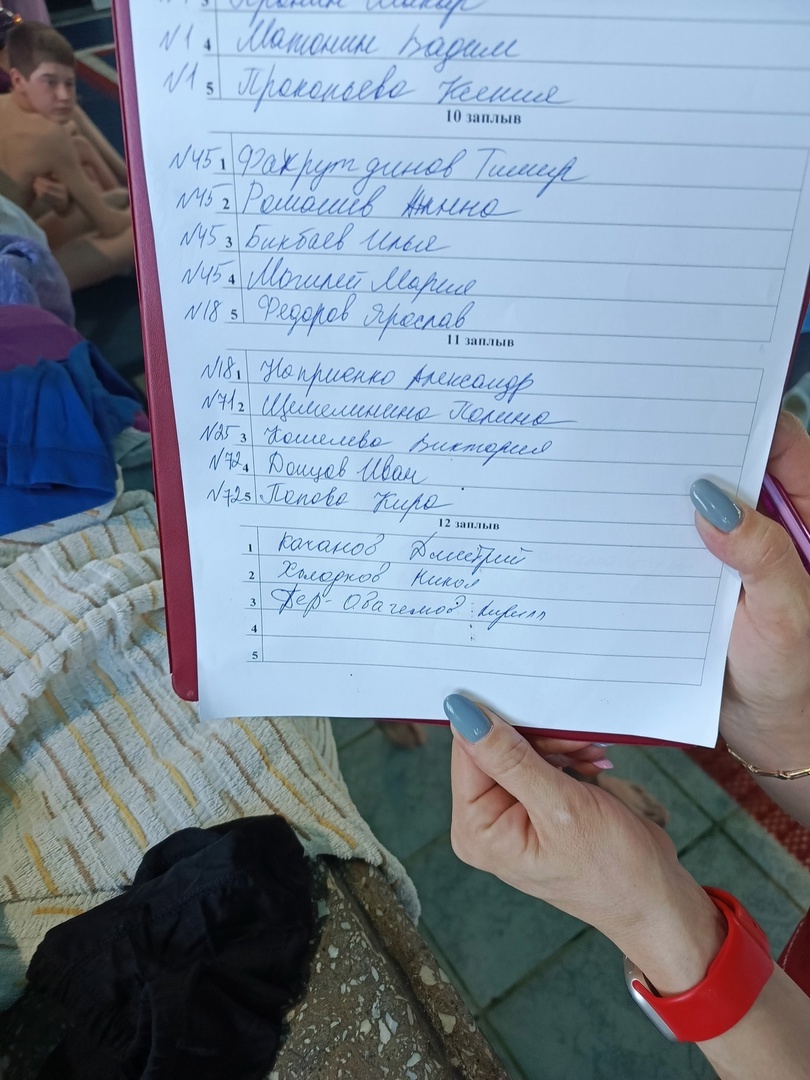 3
N1 4 Матонин Вадим
N1 5 Прокопьева Ксения
10 заплыв
N45 1 Фахрутдинов Тимур
N45 2 Ромашев
N45 3 Бикбаев Илья
N45 4 Могилей Мария
N18 5 Федоров Ярослав
11 заплыв
N18 1 Наприенко Александр
N71 2 Щемелинина Полина
N25 3 Кошелева Виктория
N72 4 Донцов Иван
N72 5 Попова Кира
12 заплыв
1 Качанов Дмитрий
2
3 Кирилл
4
5